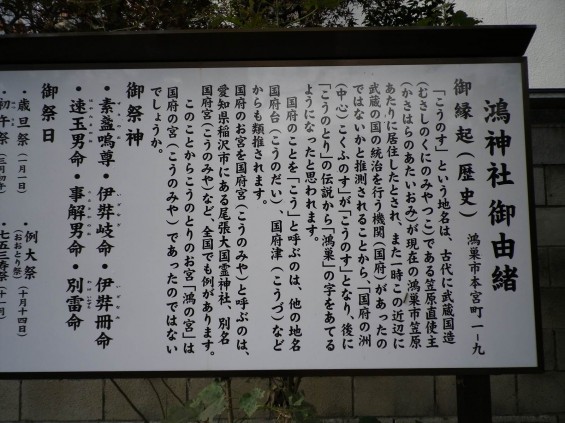 鴻神社御由緒
鴻巣市本宮町一－九
御縁起(歴史)
「こうのす」という地名は、古代に武蔵国造
(むさしのくにのみやつこ)である笠原直使主
(かさはらのあたいおみ)が現在の鴻巣市笠原
あたりに居住したとされ、また一時この近辺に
武蔵の国の統治を行う機関(国府)があったの
ではないかと推測されることから、「国府の洲
(中心)こくふのす」が「こうのす」となり、後に
「こうのとり」の伝説から「鴻巣」の字をあてる
ようになったと思われます。
国府のことを「こう」と呼ぶのは、他の地名
国府台(こうのだい)、国府津(こうづ)など
からも類推されます。
国府のお宮を国府宮(こうのみや)と呼ぶのは、
愛知県稲沢市にある尾張大国霊神社、別名
国府宮(こうのみや)など、全国でも例があります。
このことからこうのとりのお宮「鴻の宮」は
国府の宮(こうのみや)であったのではない
でしょうか。
御祭神
・素盞嗚尊・伊弉岐命・伊弉冊命
・速玉男命・事解男命・別雷命
御祭日
・歳旦祭(一月一日)
・例大祭(おおとり祭)(十月十四日)
・初午祭(三月
・七五三寿祭(十一月